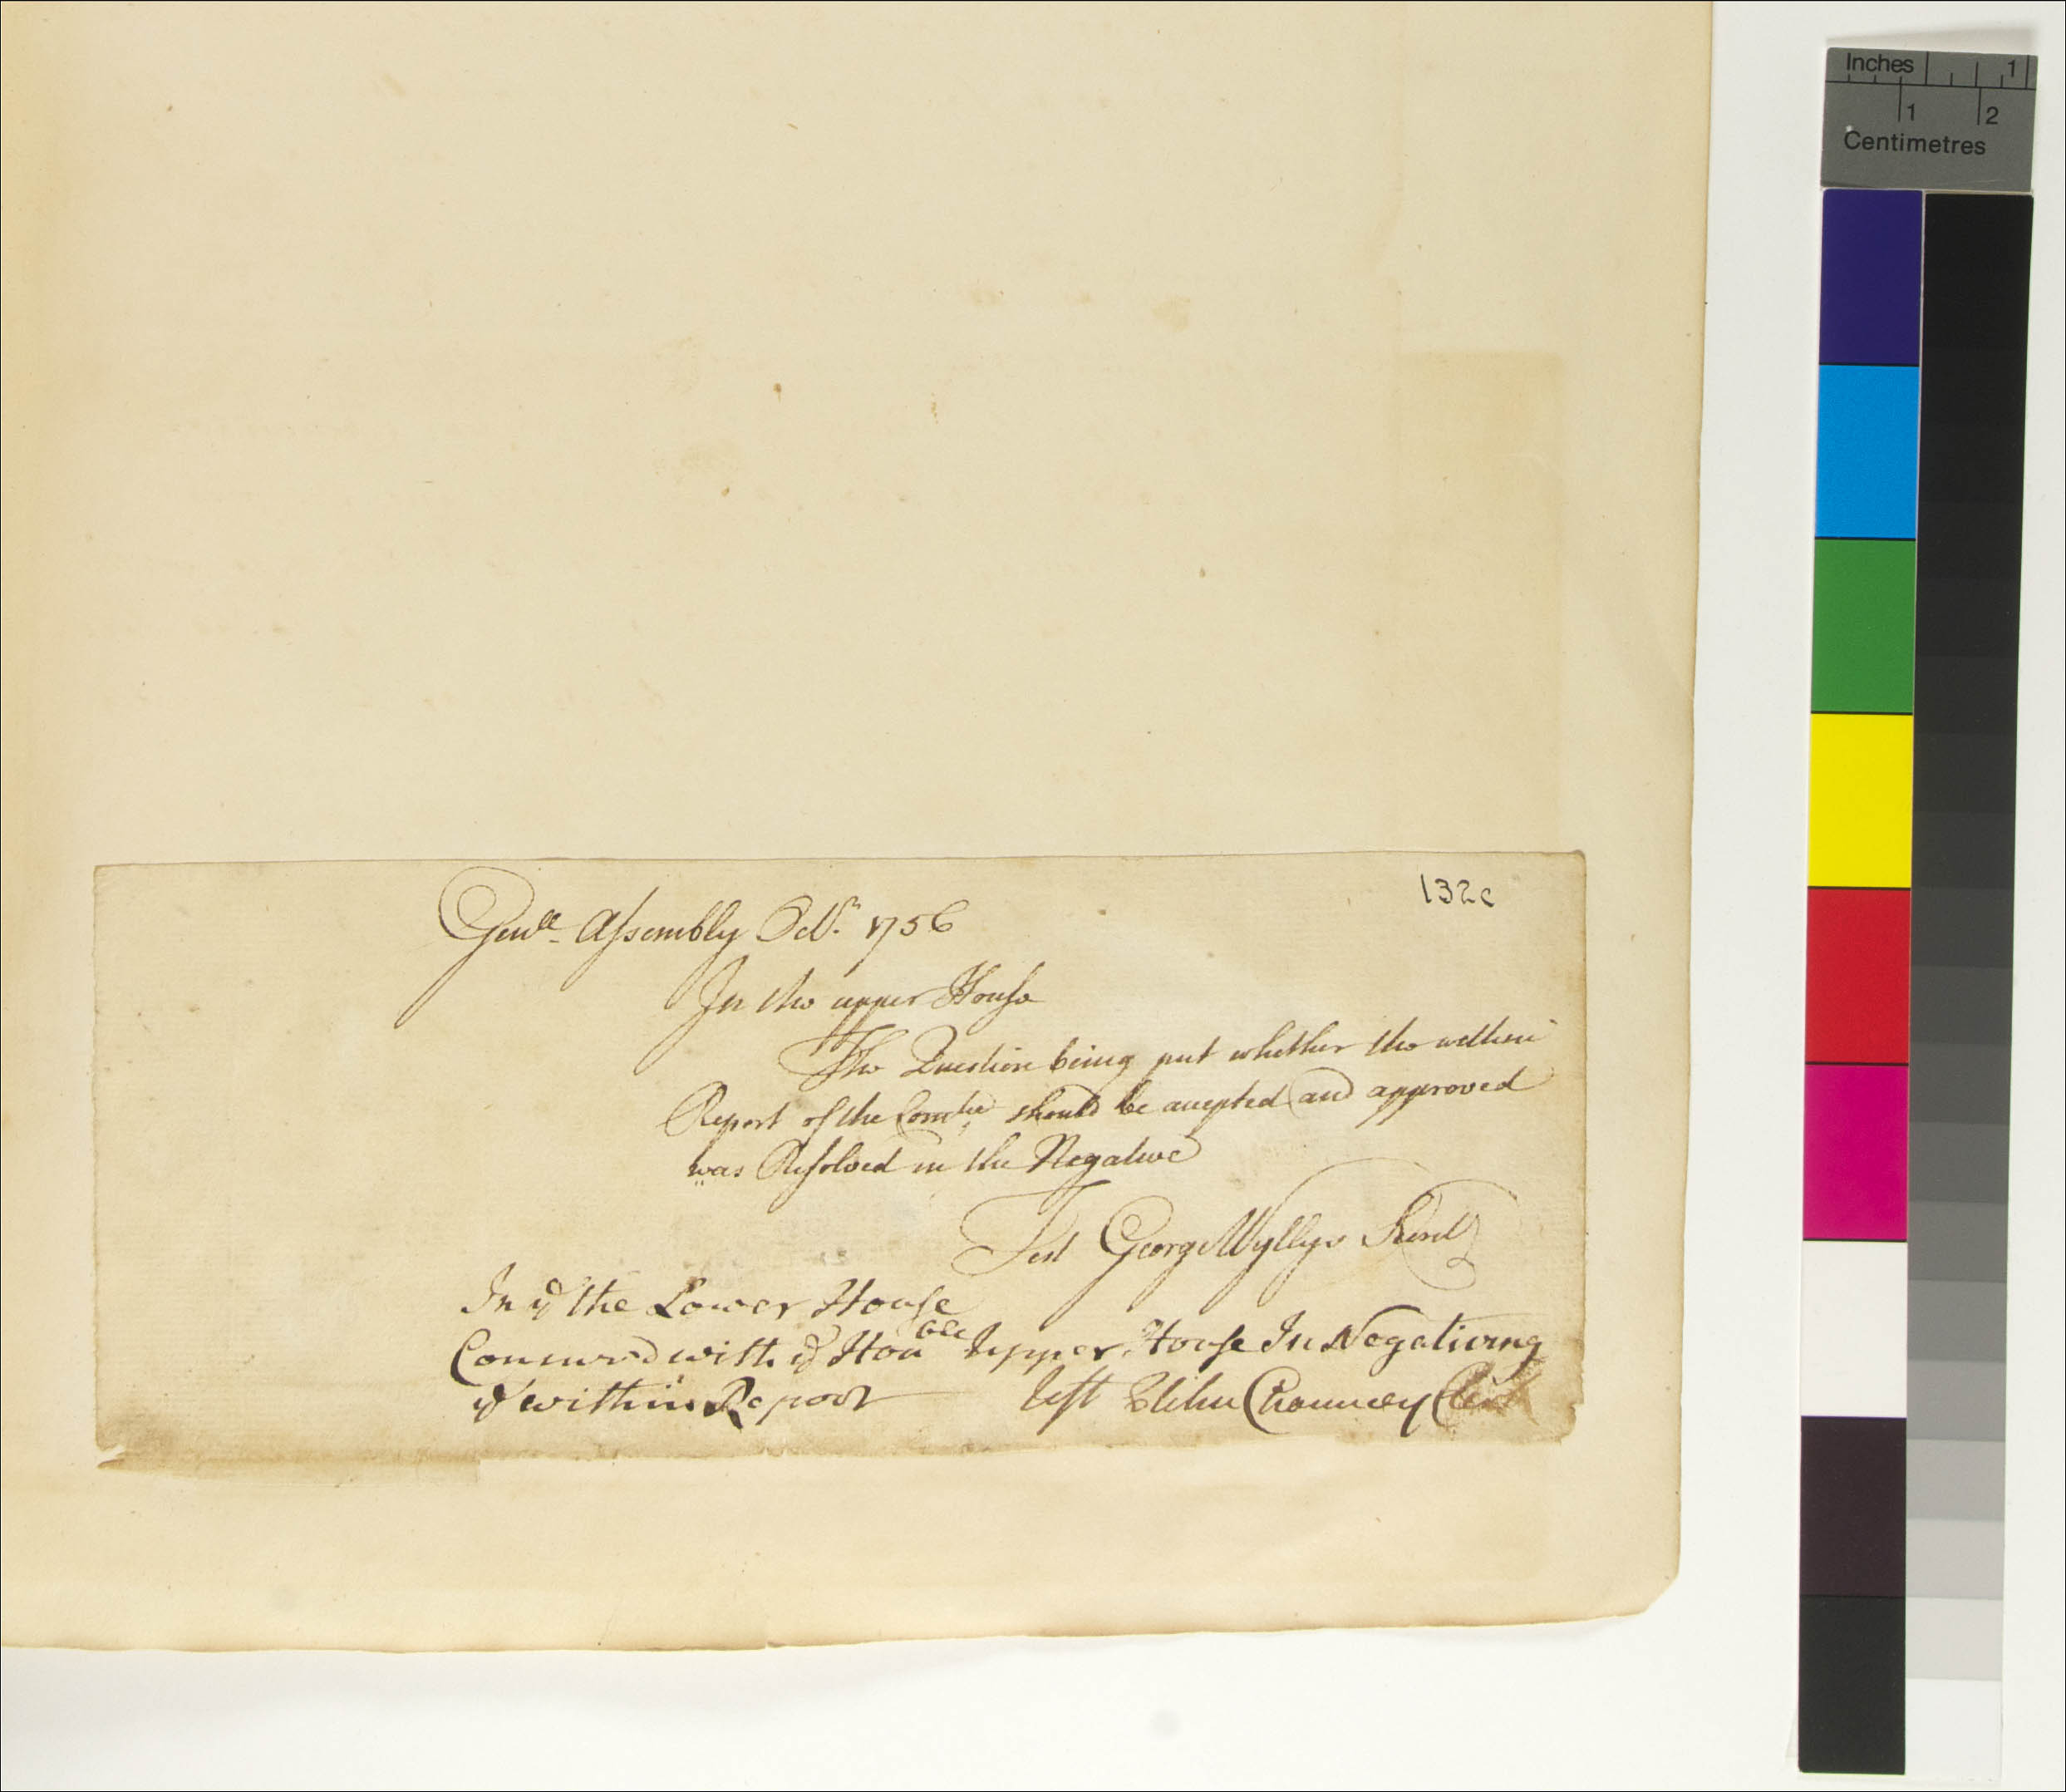 Inches 1
1 2
Centimetres
132c
Genll Assembly Octr. 1756
In the upper House
The Question being put whether the within
Report of the Comtee should be accepted and approved
was Resolved in the Negative
Test George Wyllys Secretʸ
In ye the Lower House
Concurrd with ye Honble Upper House In Negativing
ye within Report Test Elihu Chauncey Clerk